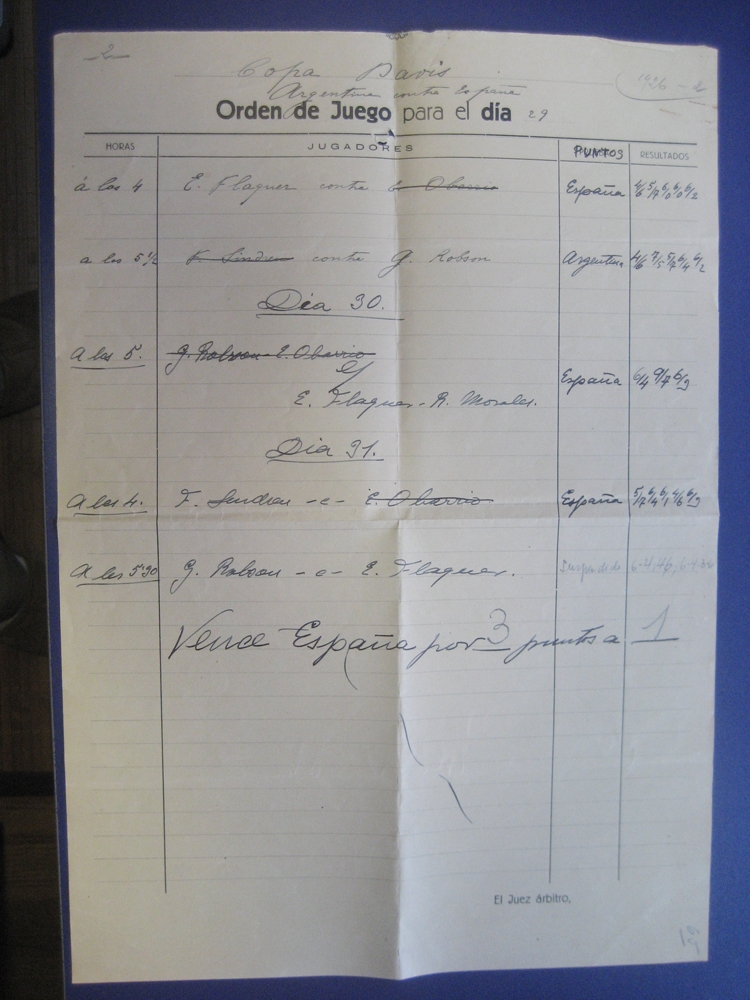 2
Copa Davis
1926 - 2
Argentina contra España
Orden de Juego para el día 29
HORAS JUGADORES PUNTOS RESULTADOS
á las 4 E. Flaquer contra E. Obarrio España 4/6 5/7 6/0 6/0 6/2
a las 5 1/2 contra G. Robson Argentina 4/6 7/5 5/7 6/4 6/2
Día 30.
A las 5. G. Robson - E. Obarrio
c/ España 6/4 9/7 6/3
E. Flaquer - R. Morales.
Día 31.
A las 4. F. Sindreu - c - E. Obarrio España 5/7 6/4 6/1 4/6 6/3
A las 5'30 G. Robson - c - E. Flaquer. Suspendido
Vence España por 3 puntos a 1
El Juez árbitro,